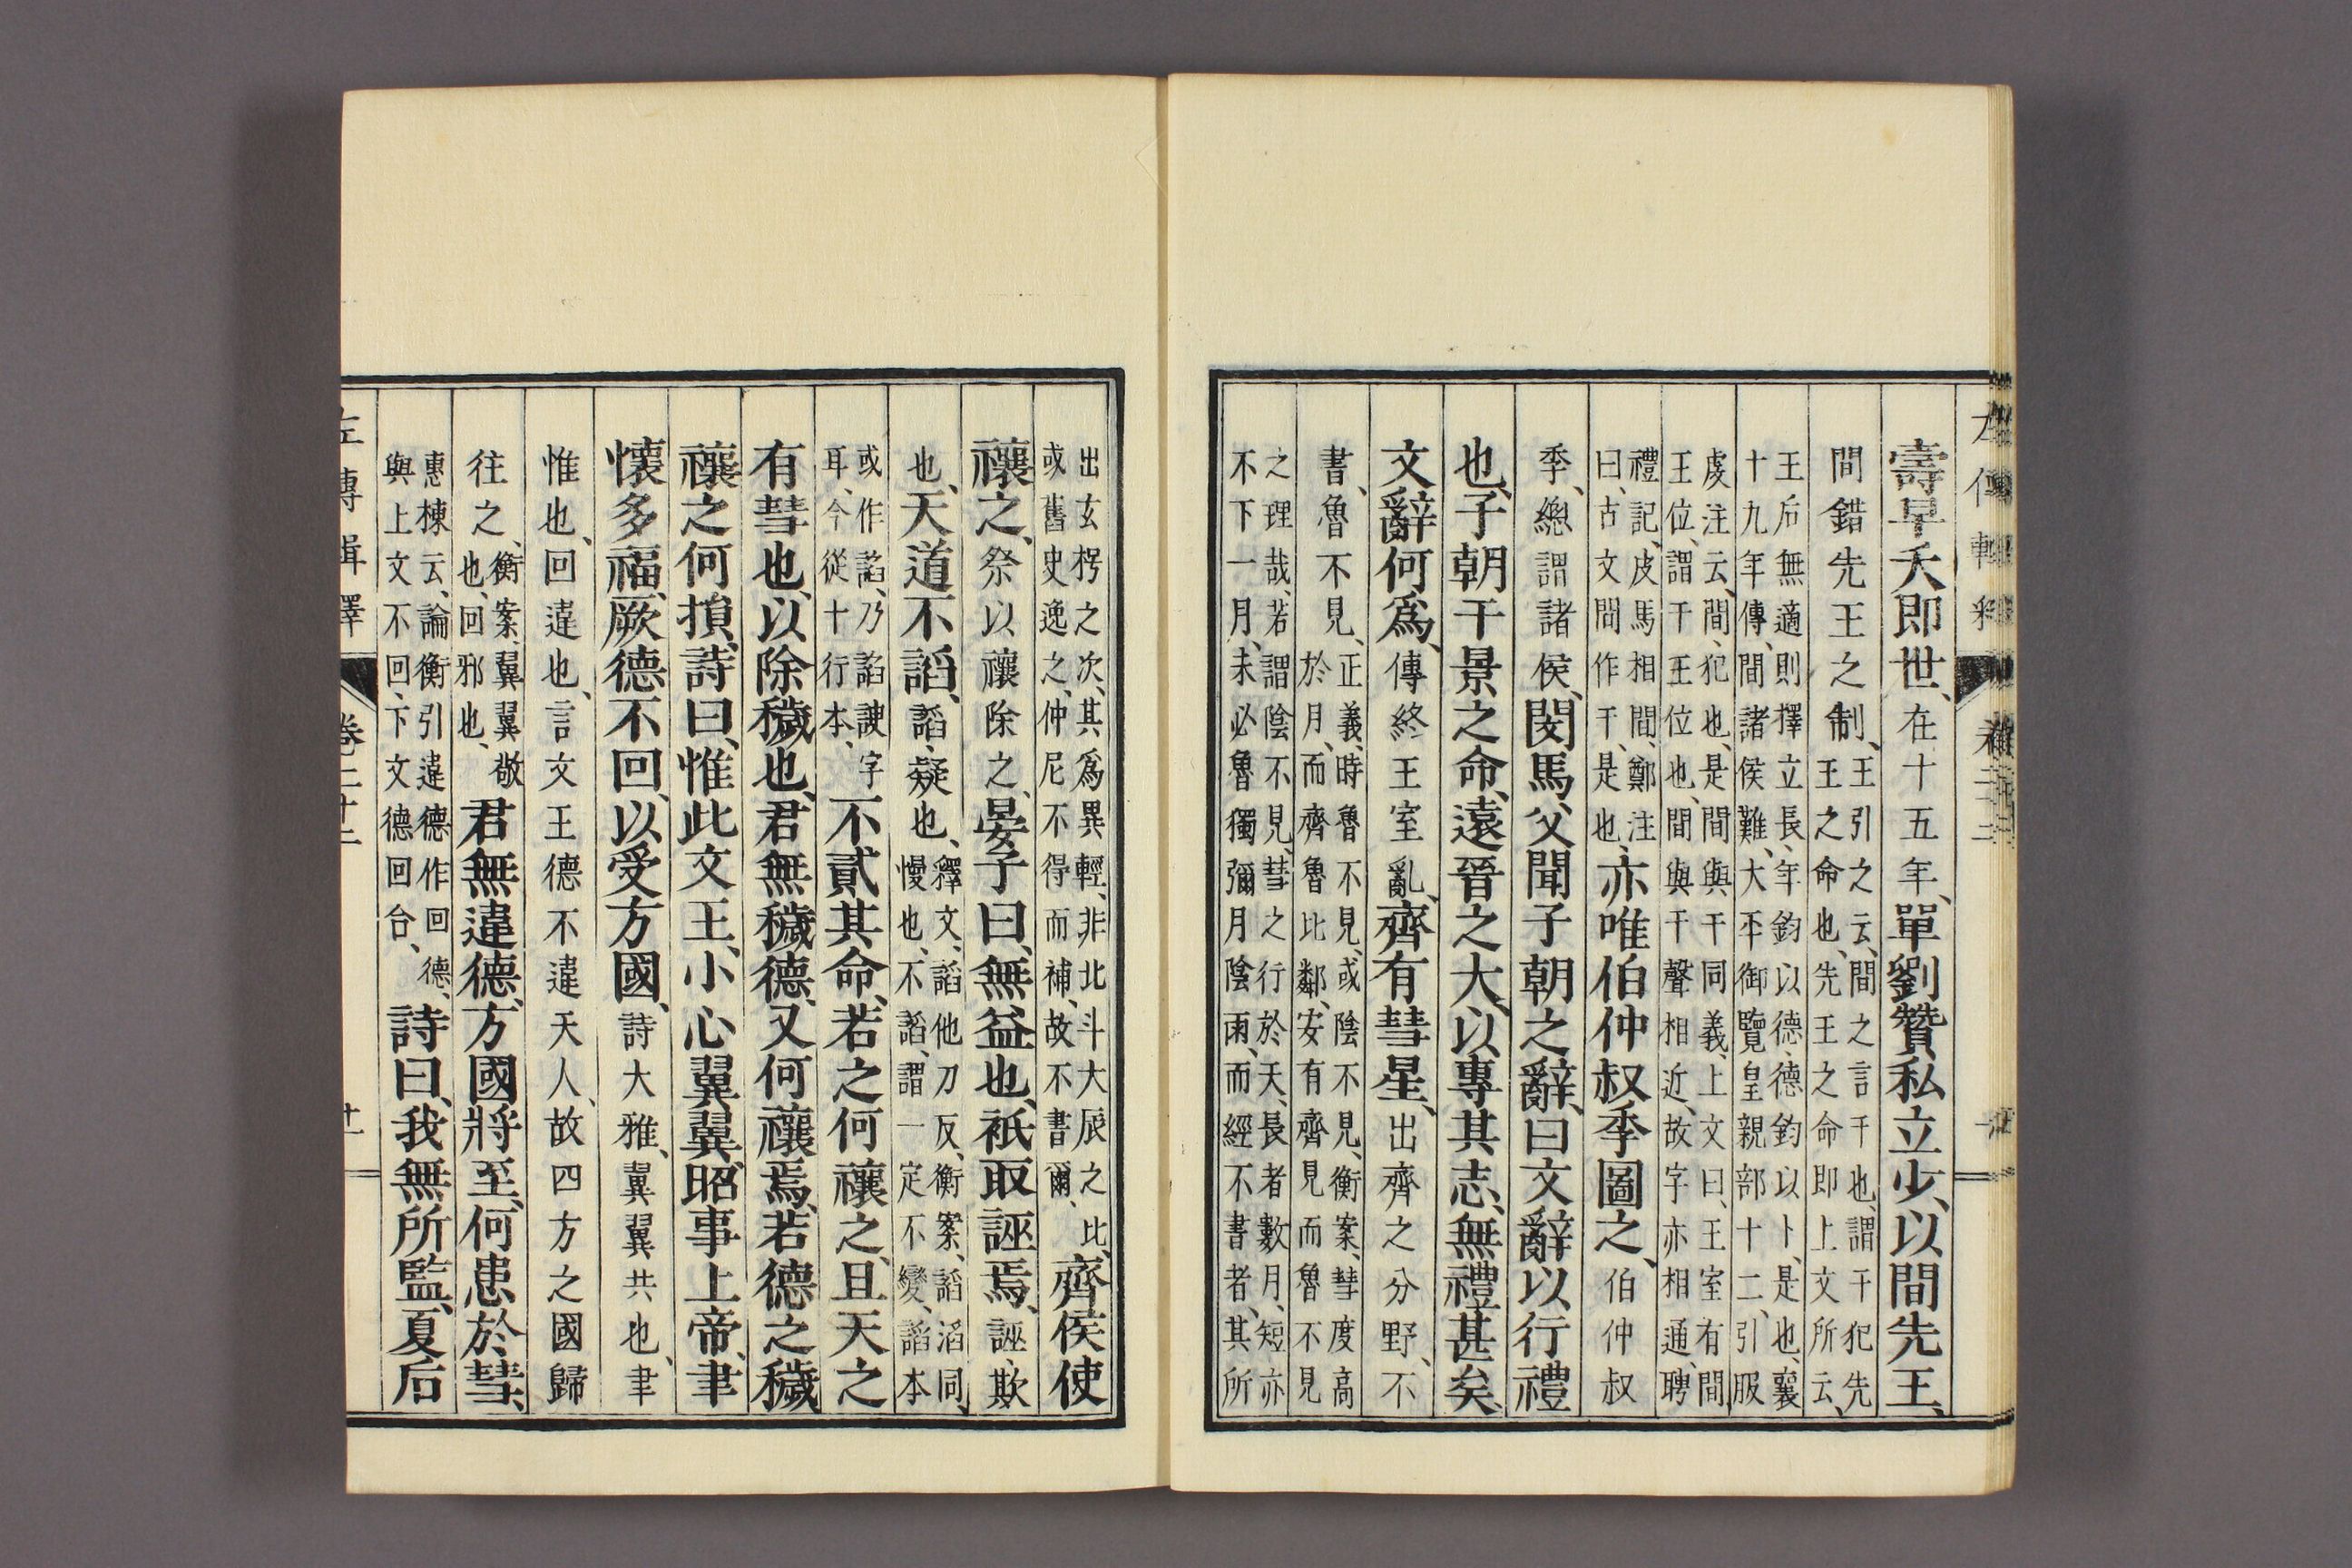 壽早夭即世、在十五年、單劉贊私立少、以間先王、
間錯先王之制、王引之云、間之言干也、謂干犯先
王之命也、先王之命即上文所云、
王后無適則擇立長、年鈞以德、德鈞以卜、是也、襄
十九年傳、間諸侯難、大平御覽皇親部十二、引服
虔注云、間、犯也、是間與干同義、上文曰、王室有間
王位、謂干王位也、間與干聲相近、故字亦相通、聘
禮記、皮馬相間、鄭注
曰、古文間作干、是也、亦唯伯仲叔季圖之、伯仲叔
季、總謂諸侯、閔馬父聞子朝之辭、曰文辭以行禮
也、子朝干景之命、遠晉之大、以專其志、無禮甚矣、
文辭何爲、傳終王室亂、齊有彗星、出齊之分野、不
書、魯不見、正義、時魯不見、或陰不見、衡案、彗度高
於月、而齊魯比鄰、安有齊見而魯不見
之理哉、若謂陰不見、彗之行於天、長者數月、短亦
不下一月、未必魯獨彌月陰雨、而經不書者、其所
出玄枵之次、其爲異輕、非北斗大辰之比、
或舊史逸之、仲尼不得而補、故不書爾、齊侯使
禳之、祭以禳除之、晏子曰、無益也、祇取誣焉、誣、欺
也、天道不謟、謟、疑也、釋文、謟他刀反、衡案、謟滔同、
慢也、不謟、謂一定不變、謟本
或作謟、乃諂諛字
耳、今從十行本、不貳其命、若之何禳之、且天之
有彗也、以除穢也、君無穢德、又何禳焉、若德之穢
禳之何損、詩曰、惟此文王、小心翼翼、昭事上帝、聿
懷多福、厥德不回、以受方國、詩大雅、翼翼共也、聿
惟也、回違也、言文王德不違天人、故四方之國歸
往之、衡案、翼翼敬
也、回邪也、君無違德、方國將至、何患於彗、
惠棟云、論衡引違德作回德、
與上文不回、下文德回合、詩曰、我無所監、夏后
左傳輯釋 卷二十二 十一